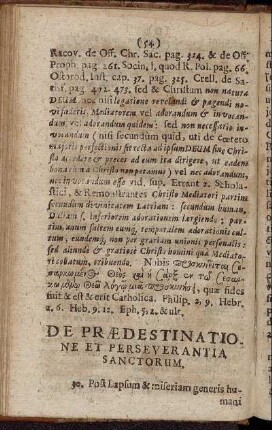 (54)
Racov. de Off. Chr. Sac. pag. 324. & de Off.
Proph. pag. 261. Socin. l. quod R. Pol. pag. 66.
Ostorod. Inst. cap. 37. pag. 325. Crell. de Sa-
pag. 472. 473. sed & Christum non natura
DEUM nec nisi legatione revelandi & pagendi
Mediatorem vel adorandum & invocan-
dum vel adorandum quidem: sed non necessario in-
vocandum (nisi secundum quid, uti de cœtero
majoris perfectionis sit recta ad ipsum DEUM sine Chri-
sto accedere & preces ad eum ita dirigere, ut eadem
bona a Christo non petamus) vel nec adorandum,
nec invocandum esse vid. sup. Errant 2. Schola-
stici, & Remonstrantes Christo Mediatori partim
secundum divinitatem Latriam: secundum humanam,
Duliam s. inferiorem adorationem largiendo: par-
tim, unum saltem eumq; temporalem adorationis cul-
tum, eundemq; non per gratiam unionis personalis: sed
aliunde & gratiose Christi homini qua Mediato-
ri
Θεὸς καὶ ἡ σὰρξ
Θεῦ λόγῳ μιᾷ quæ fides
fuit & est & erit Catholica. Philip. 2, 9. Hebr.
2. 6. Heb. 9. 12. Eph. 5. 2. & ult.
DE PRÆDESTINATIO-
NE ET PERSEVERANTIA
SANCTORUM.
30. Post Lapsum & miseriam generis hu-
mani